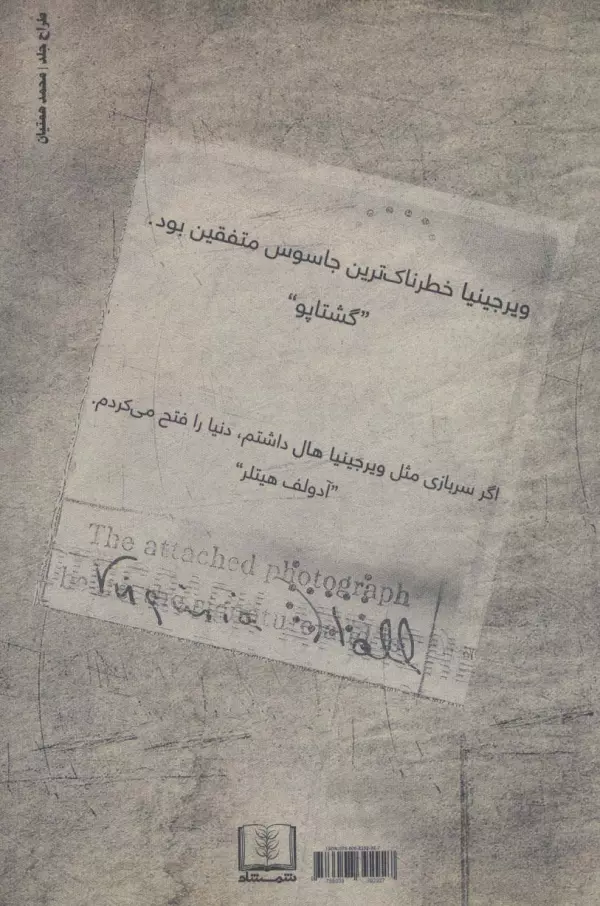 طراح جلد | محمد همتیان
ویرجینیا خطرناک‌ترین جاسوس متفقین بود.
”گشتاپو“
اگر سربازی مثل ویرجینیا هال داشتم، دنیا را فتح می‌کردم.
”آدولف هیتلر“
The attached photograph
Virginia Hall
شمشاد